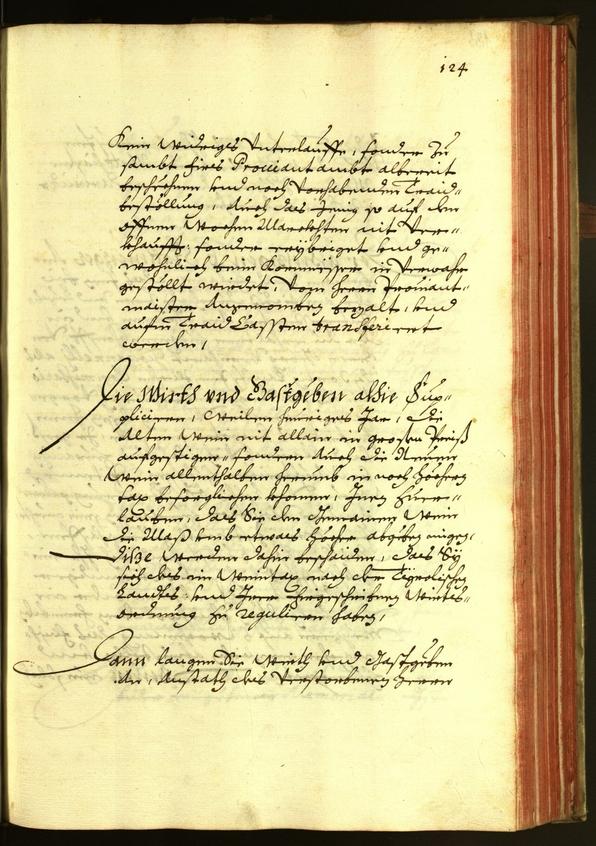 124
Kein widriges Unterlauffe, sonder zu
sambt Eures Proviantambt albereit
beschehnen und noch vorhabenden Traid-
bestöllung, auch das Jenig so auf den
offnen Wochen Märckhten nit ver-
khaufft, sonder erybriget und ge-
wohnlich beim Kornmesser in Verwahr
gestöllt wirdet, vom Herrn Proviant-
maister angenomben bezalt, und
auf den Traid Cassten transferiert
werden,
Die Wirts und Gastgeben alhie Sup-
pliciren, weilen heuriges Jar, die
Alten Wein nit allain in grossen Preiß
aufgestigen, sondern auch die Neuen
Wein allenthalben herumb in noch höhern
tax besorglichen khomen, Inen zuer-
lauben, das Sie den gemainen Wein
die Maß umb etwas höher abgeben mögen,
Dise werden dahin beschaiden, das Sy
sich des im Weintax nach der Tyrolischen
Landts- und Irer fürgeschribnen Wierts-
ordnung zu reguliren haben,
Dann langen Sie Wirth und Gastgeben
an, anstath des Verstorbenen Herrn